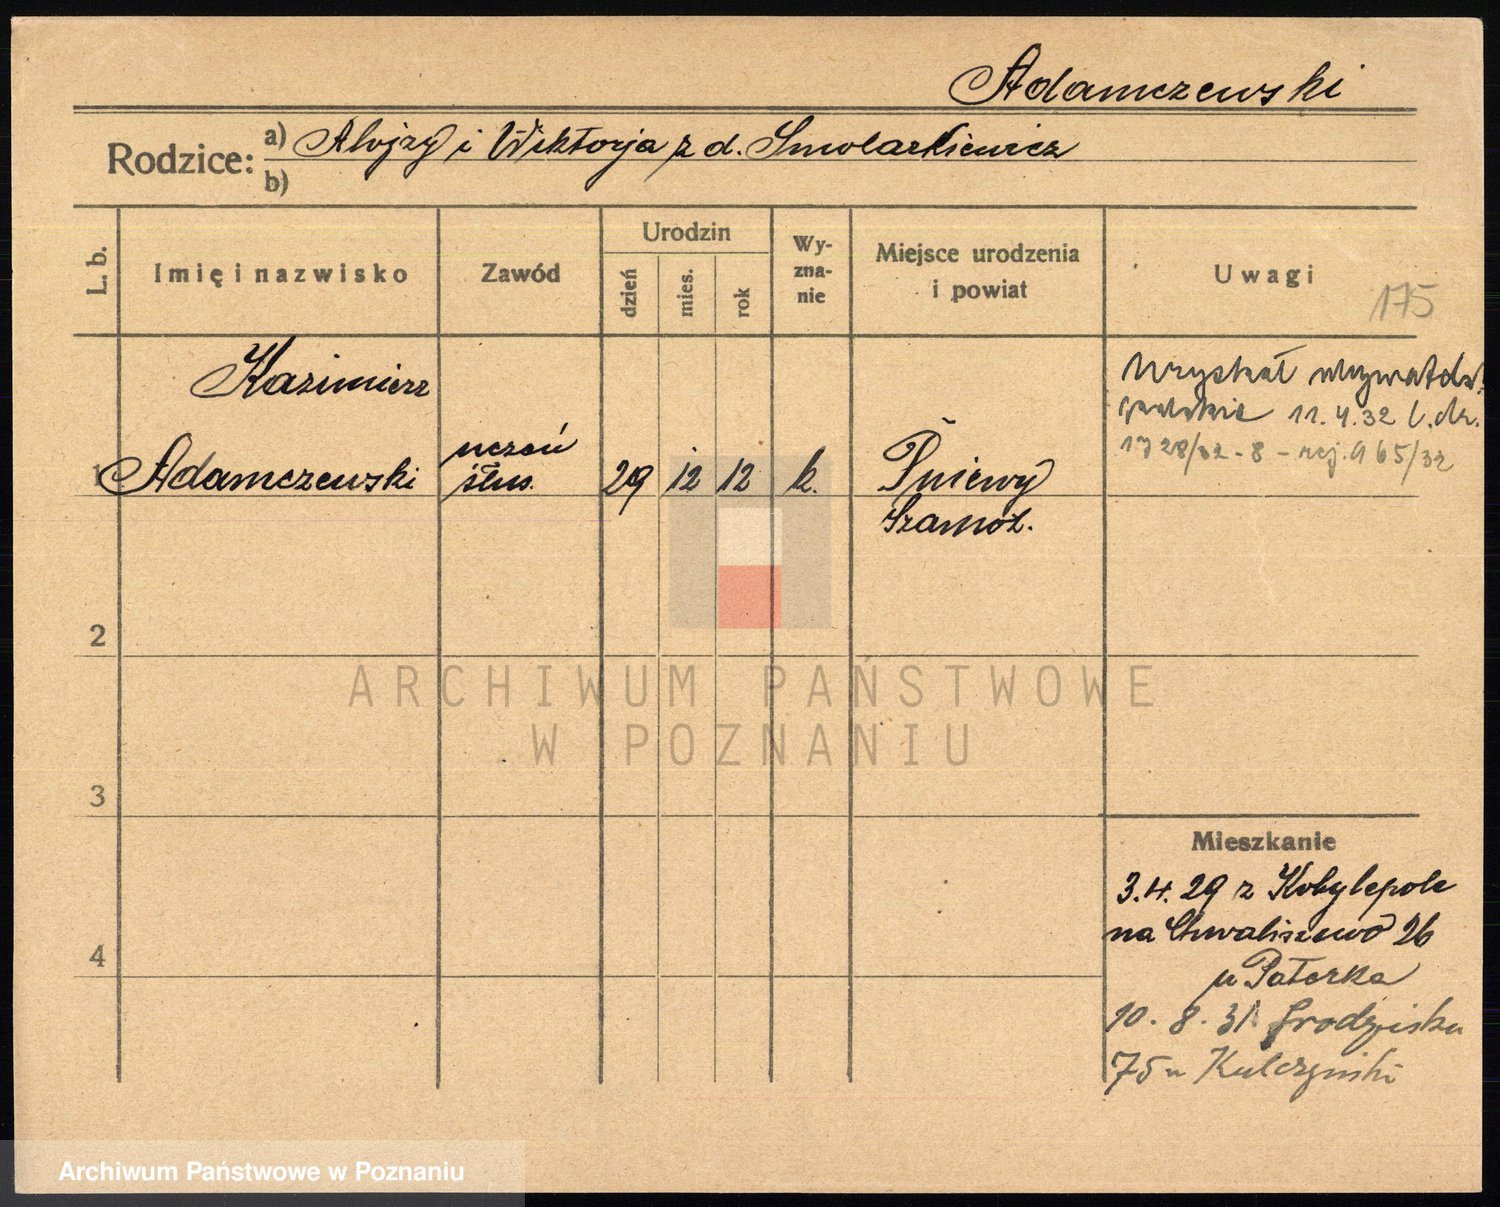 Adamczewski
Rodzice: a) Alojzy i Wiktorja z d. Smolarkiewicz
b)
L. b.
Imię i nazwisko
Zawód
Urodzin
dzień
mies.
rok
Wy-
zna-
nie
Miejsce urodzenia
i powiat
Uwagi
175
1
Kazimierz
Adamczewski
uczeń
ślus.
29 12 12 k.
Pniewy
Szamot.
Uzyskał
11.4.32 l.dz.
1728/32 - 8 - rej. 965/32
2
3
4
Mieszkanie
3.4.29 z Kobylepole
na Chwaliszewo 26
u Paterka
10.8.31 Grodziska
75 u Kulczyński
ARCHIWUM PAŃSTWOWE
W POZNANIU
Archiwum Państwowe w Poznaniu